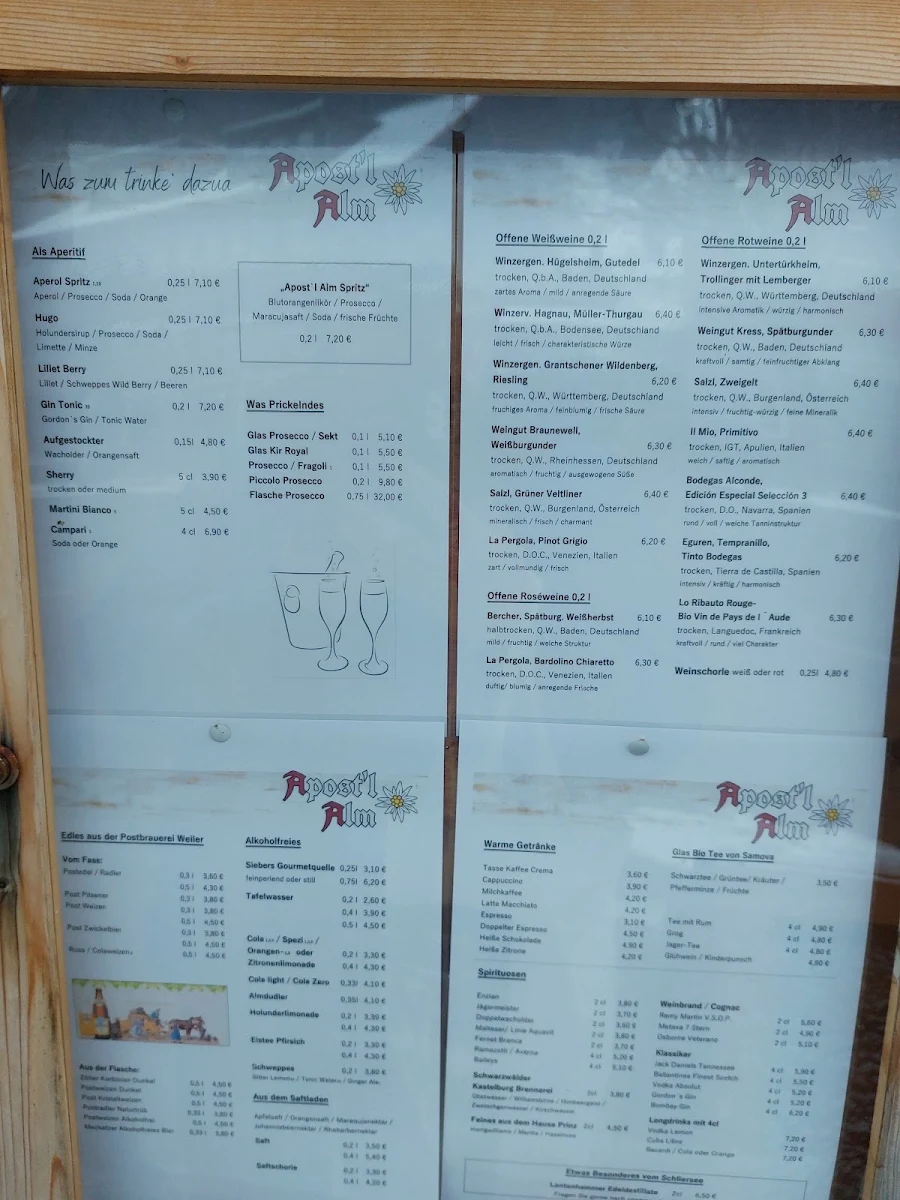 Was zum trinke' dazua
Apost'l
Alm
Als Aperitif
Aperol Spritz 0,25 l 7,10 €
Aperol / Prosecco / Soda / Orange
Hugo 0,25 l 7,10 €
Holundersirup / Prosecco / Soda /
Limette / Minze
Lillet Berry 0,25 l 7,10 €
Lillet / Schweppes Wild Berry / Beeren
Gin Tonic 0,2 l 7,20 €
Gordon`s Gin / Tonic Water
Aufgestockter 0,15l 4,80 €
Wacholder / Orangensaft
Sherry 5 cl 3,90 €
trocken oder medium
Martini Bianco 5 cl 4,50 €
Campari 4 cl 6,90 €
Soda oder Orange
„Apost`l Alm Spritz"
Blutorangenlikör / Prosecco /
Maracujasaft / Soda / frische Früchte
0,2 l 7,20 €
Was Prickelndes
Glas Prosecco / Sekt 0,1 l 5,10 €
Glas Kir Royal 0,1 l 5,50 €
Prosecco / Fragoli 0,1 l 5,50 €
Piccolo Prosecco 0,2 l 9,80 €
Flasche Prosecco 0,75 l 32,00 €
Apost'l
Alm
Offene Weißweine 0,2 l
Winzergen. Hügelsheim, Gutedel 6,10 €
trocken, Q.b.A., Baden, Deutschland
zartes Aroma / mild / anregende Säure
Winzerv. Hagnau, Müller-Thurgau 6,40 €
trocken, Q.b.A., Bodensee, Deutschland
leicht / frisch / charakteristische Würze
Winzergen. Grantschener Wildenberg,
Riesling 6,20 €
trocken, Q.W., Württemberg, Deutschland
fruchiges Aroma / feinblumig / frische Säure
Weingut Braunewell,
Weißburgunder 6,30 €
trocken, Q.W., Rheinhessen, Deutschland
aromatisch / fruchtig / ausgewogene Süße
Salzl, Grüner Veltliner 6,40 €
trocken, Q.W., Burgenland, Österreich
mineralisch / frisch / charmant
La Pergola, Pinot Grigio 6,20 €
trocken, D.O.C., Venezien, Italien
zart / vollmundig / frisch
Offene Roséweine 0,2 l
Bercher, Spätburg. Weißherbst 6,10 €
halbtrocken, Q.W., Baden, Deutschland
mild / fruchtig / weiche Struktur
La Pergola, Bardolino Chiaretto 6,30 €
trocken, D.O.C., Venezien, Italien
duftig/ blumig / anregende Frische
Offene Rotweine 0,2 l
Winzergen. Untertürkheim,
Trollinger mit Lemberger 6,10 €
trocken, Q.W., Württemberg, Deutschland
intensive Aromatik / würzig / harmonisch
Weingut Kress, Spätburgunder 6,30 €
trocken, Q.W., Baden, Deutschland
kraftvoll / samtig / feinfruchtiger Abklang
Salzl, Zweigelt 6,40 €
trocken, Q.W., Burgenland, Österreich
intensiv / fruchtig-würzig / feine Mineralik
Il Mio, Primitivo 6,40 €
trocken, IGT, Apulien, Italien
weich / saftig / aromatisch
Bodegas Alconde,
Edición Especial Selección 3 6,40 €
trocken, D.O., Navarra, Spanien
rund / voll / weiche Tanninstruktur
Eguren, Tempranillo,
Tinto Bodegas 6,20 €
trocken, Tierra de Castilla, Spanien
intensiv / kräftig / harmonisch
Lo Ribauto Rouge-
Bio Vin de Pays de l´Aude 6,30 €
trocken, Languedoc, Frankreich
kraftvoll / rund / viel Charakter
Weinschorle weiß oder rot 0,25l 4,80 €
Apost'l
Alm
Edles aus der Postbrauerei Weiler
Vom Fass:
Postedel / Radler 0,3 l 3,60 €
0,5 l 4,30 €
Post Pilsener 0,3 l 3,80 €
Post Weizen 0,3 l 3,80 €
0,5 l 4,50 €
Post Zwickelbier 0,3 l 3,80 €
0,5 l 4,50 €
Russ / Colaweizen 0,5 l 4,50 €
Aus der Flasche:
0,5 l 4,50 €
Postweizen Dunkel 0,5 l 4,50 €
Post Kristallweizen 0,5 l 4,50 €
Postradler Naturtrüb 0,33 l 3,80 €
Postweizen Alkoholfrei 0,5 l 4,50 €
Meckatzer Alkoholfreies Bier 0,33 l 3,80 €
Alkoholfreies
Siebers Gourmetquelle 0,25l 3,10 €
feinperlend oder still 0,75l 6,20 €
Tafelwasser 0,2 l 2,60 €
0,4 l 3,90 €
0,5 l 4,50 €
Cola / Spezi /
Orangen- oder 0,2 l 3,30 €
Zitronenlimonade 0,4 l 4,30 €
Cola light / Cola Zero 0,33l 4,10 €
Almdudler 0,35l 4,10 €
Holunderlimonade 0,2 l 3,30 €
0,4 l 4,30 €
Eistee Pfirsich 0,2 l 3,30 €
0,4 l 4,30 €
Schweppes 0,2 l 3,80 €
Bitter Lemon / Tonic Water / Ginger Ale
Aus dem Saftladen
Apfelsaft / Orangensaft / Maracujanektar /
Johannisbeernektar / Rhabarbernektar
Saft 0,2 l 3,50 €
0,4 l 5,40 €
Saftschorle 0,2 l 3,30 €
0,4 l 4,30 €
Apost'l
Alm
Warme Getränke
Tasse Kaffee Crema 3,60 €
Cappuccino 3,90 €
Milchkaffee 4,20 €
Latte Macchiato 4,20 €
Espresso 3,10 €
Doppelter Espresso 4,50 €
Heiße Schokolade 4,90 €
Heiße Zitrone 4,20 €
Glas Bio Tee von Samova
Schwarztee / Grüntee/ Kräuter / 3,50 €
Pfefferminze / Früchte
Tee mit Rum 4 cl 4,90 €
Grog 4 cl 4,80 €
Jager-Tee 4 cl 4,80 €
Glühwein / Kinderpunsch 4,80 €
Spirituosen
Enzian 2 cl 3,80 €
Jägermeister 2 cl 3,70 €
Doppelwacholder 2 cl 3,60 €
Malteser/ Linie Aquavit 2 cl 3,80 €
Fernet Branca 2 cl 3,70 €
Ramazotti / Averna 4 cl 5,20 €
Baileys 4 cl 5,10 €
Schwarzwälder
Kastelburg Brennerei 2cl 3,80 €
Feines aus dem Hause Prinz 2cl 4,50 €
Weinbrand / Cognac
Remy Martin V.S.O.P. 2 cl 5,80 €
Metaxa 7 Stern 2 cl 4,90 €
Osborne Veterano 2 cl 5,10 €
Klassiker
Jack Daniels Tennessee 4 cl 5,90 €
Ballantines Finest Scotch 4 cl 5,50 €
Vodka Absolut 4 cl 5,20 €
Gordon`s Gin 4 cl 5,20 €
Bombay Gin 4 cl 6,20 €
Longdrinks mit 4cl
Vodka Lemon 7,20 €
Cuba Libre 7,20 €
Bacardi / Cola oder Orange 7,20 €
Etwas Besonderes vom Schliersee
Lantenhammer Edeldestillate 2cl 6,50 €